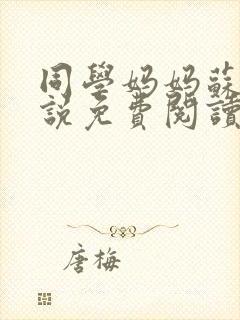 同學妈妈蘇
說免費閱讀
唐梅